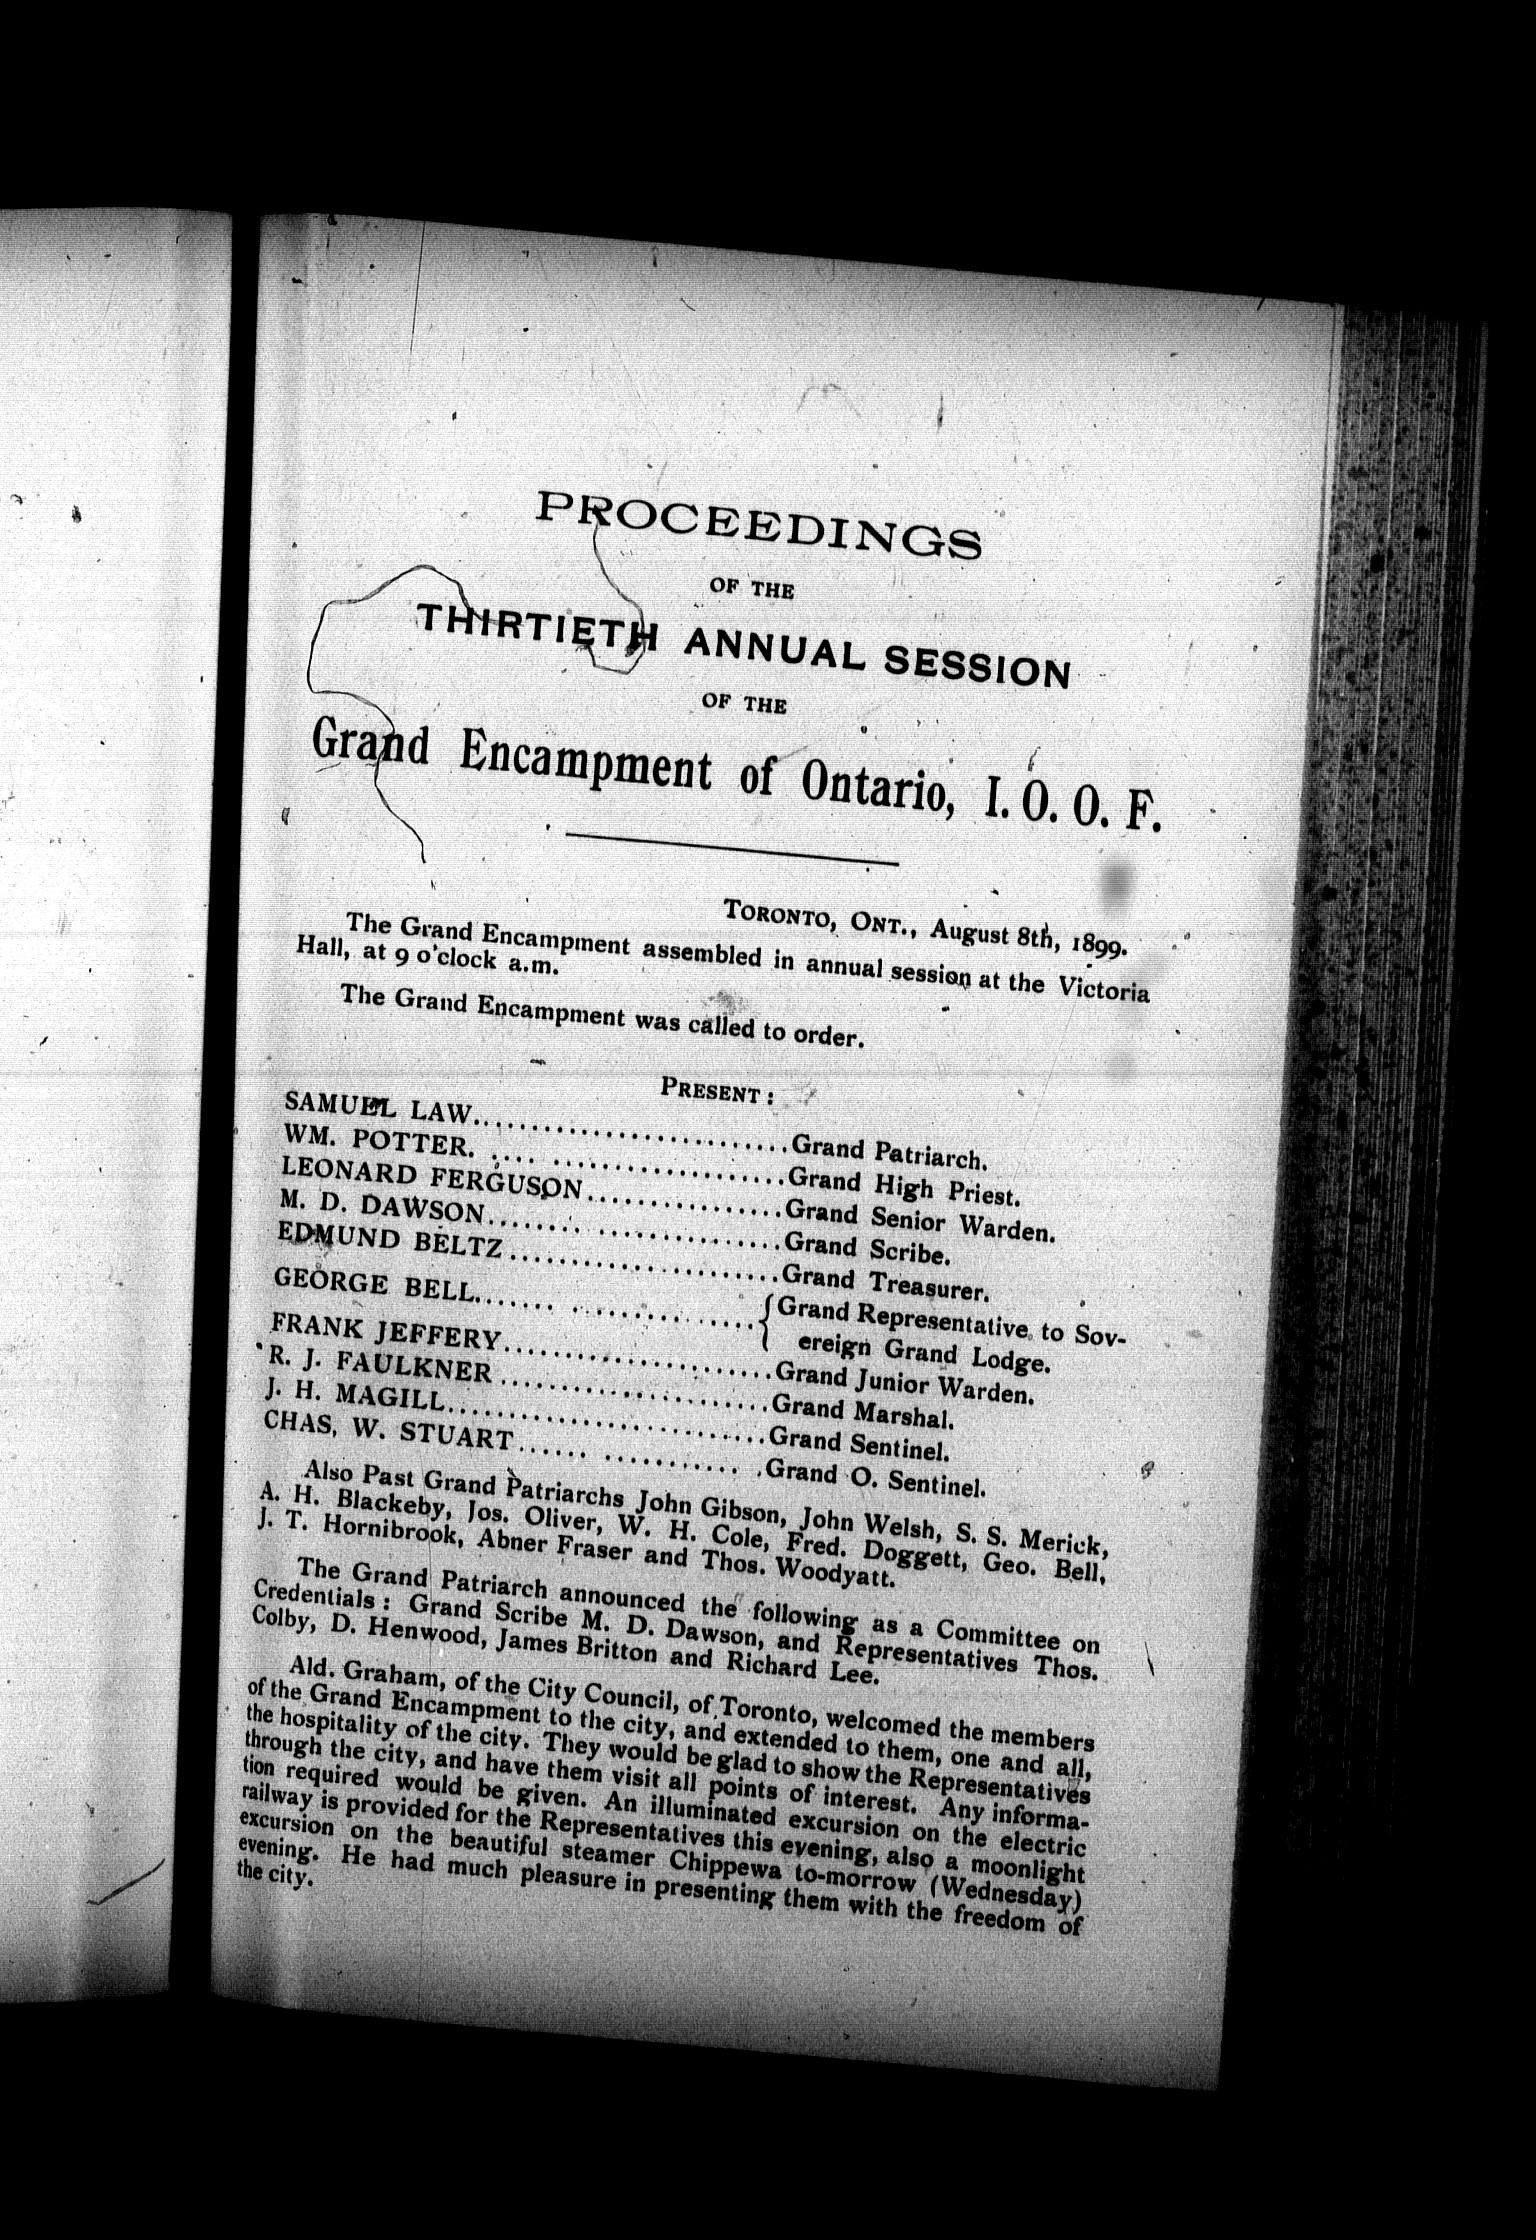 PROCEEDINGS
OF THE
THIRTIETH ANNUAL SESSION
OF THE
Grand Encampment of Ontario, I. O. O. F.
TORONTO, ONT., August 8th, 1899.
The Grand Encampment assembled in annual session at the Victoria
Hall, at 9 o'clock a.m.
The Grand Encampment was called to order.
PRESENT:
SAMUEL LAW..........................Grand Patriarch.
WM. POTTER. .... ...................Grand High Priest.
LEONARD FERGUSON................Grand Senior Warden.
M. D. DAWSON........ ...............Grand Scribe.
EDMUND BELTZ......................Grand Treasurer.
GEORGE BELL....... ...............{Grand Representative to Sov-
ereign Grand Lodge.
FRANK JEFFERY......................Grand Junior Warden.
R. J. FAULKNER ......................Grand Marshal.
J. H. MAGILL..........................Grand Sentinel.
CHAS, W. STUART...... ........... .Grand O. Sentinel.
Also Past Grand Patriarchs John Gibson, John Welsh, S. S. Merick,
A. H. Blackeby, Jos. Oliver, W. H. Cole, Fred. Doggett, Geo. Bell,
J. T. Hornibrook, Abner Fraser and Thos. Woodyatt.
The Grand Patriarch announced the following as a Committee on
Credentials: Grand Scribe M. D. Dawson, and Representatives Thos.
Colby, D. Henwood, James Britton and Richard Lee.
Ald. Graham, of the City Council, of Toronto, welcomed the members
of the Grand Encampment to the city, and extended to them, one and all,
the hospitality of the city. They would be glad to show the Representatives
through the city, and have them visit all points of interest. Any informa-
tion required would be given. An illuminated excursion on the electric
railway is provided for the Representatives this evening, also a moonlight
excursion on the beautiful steamer Chippewa to-morrow (Wednesday)
evening. He had much pleasure in presenting them with the freedom of
the city.